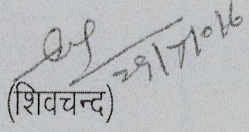 29/7/016
(शिवचन्द)